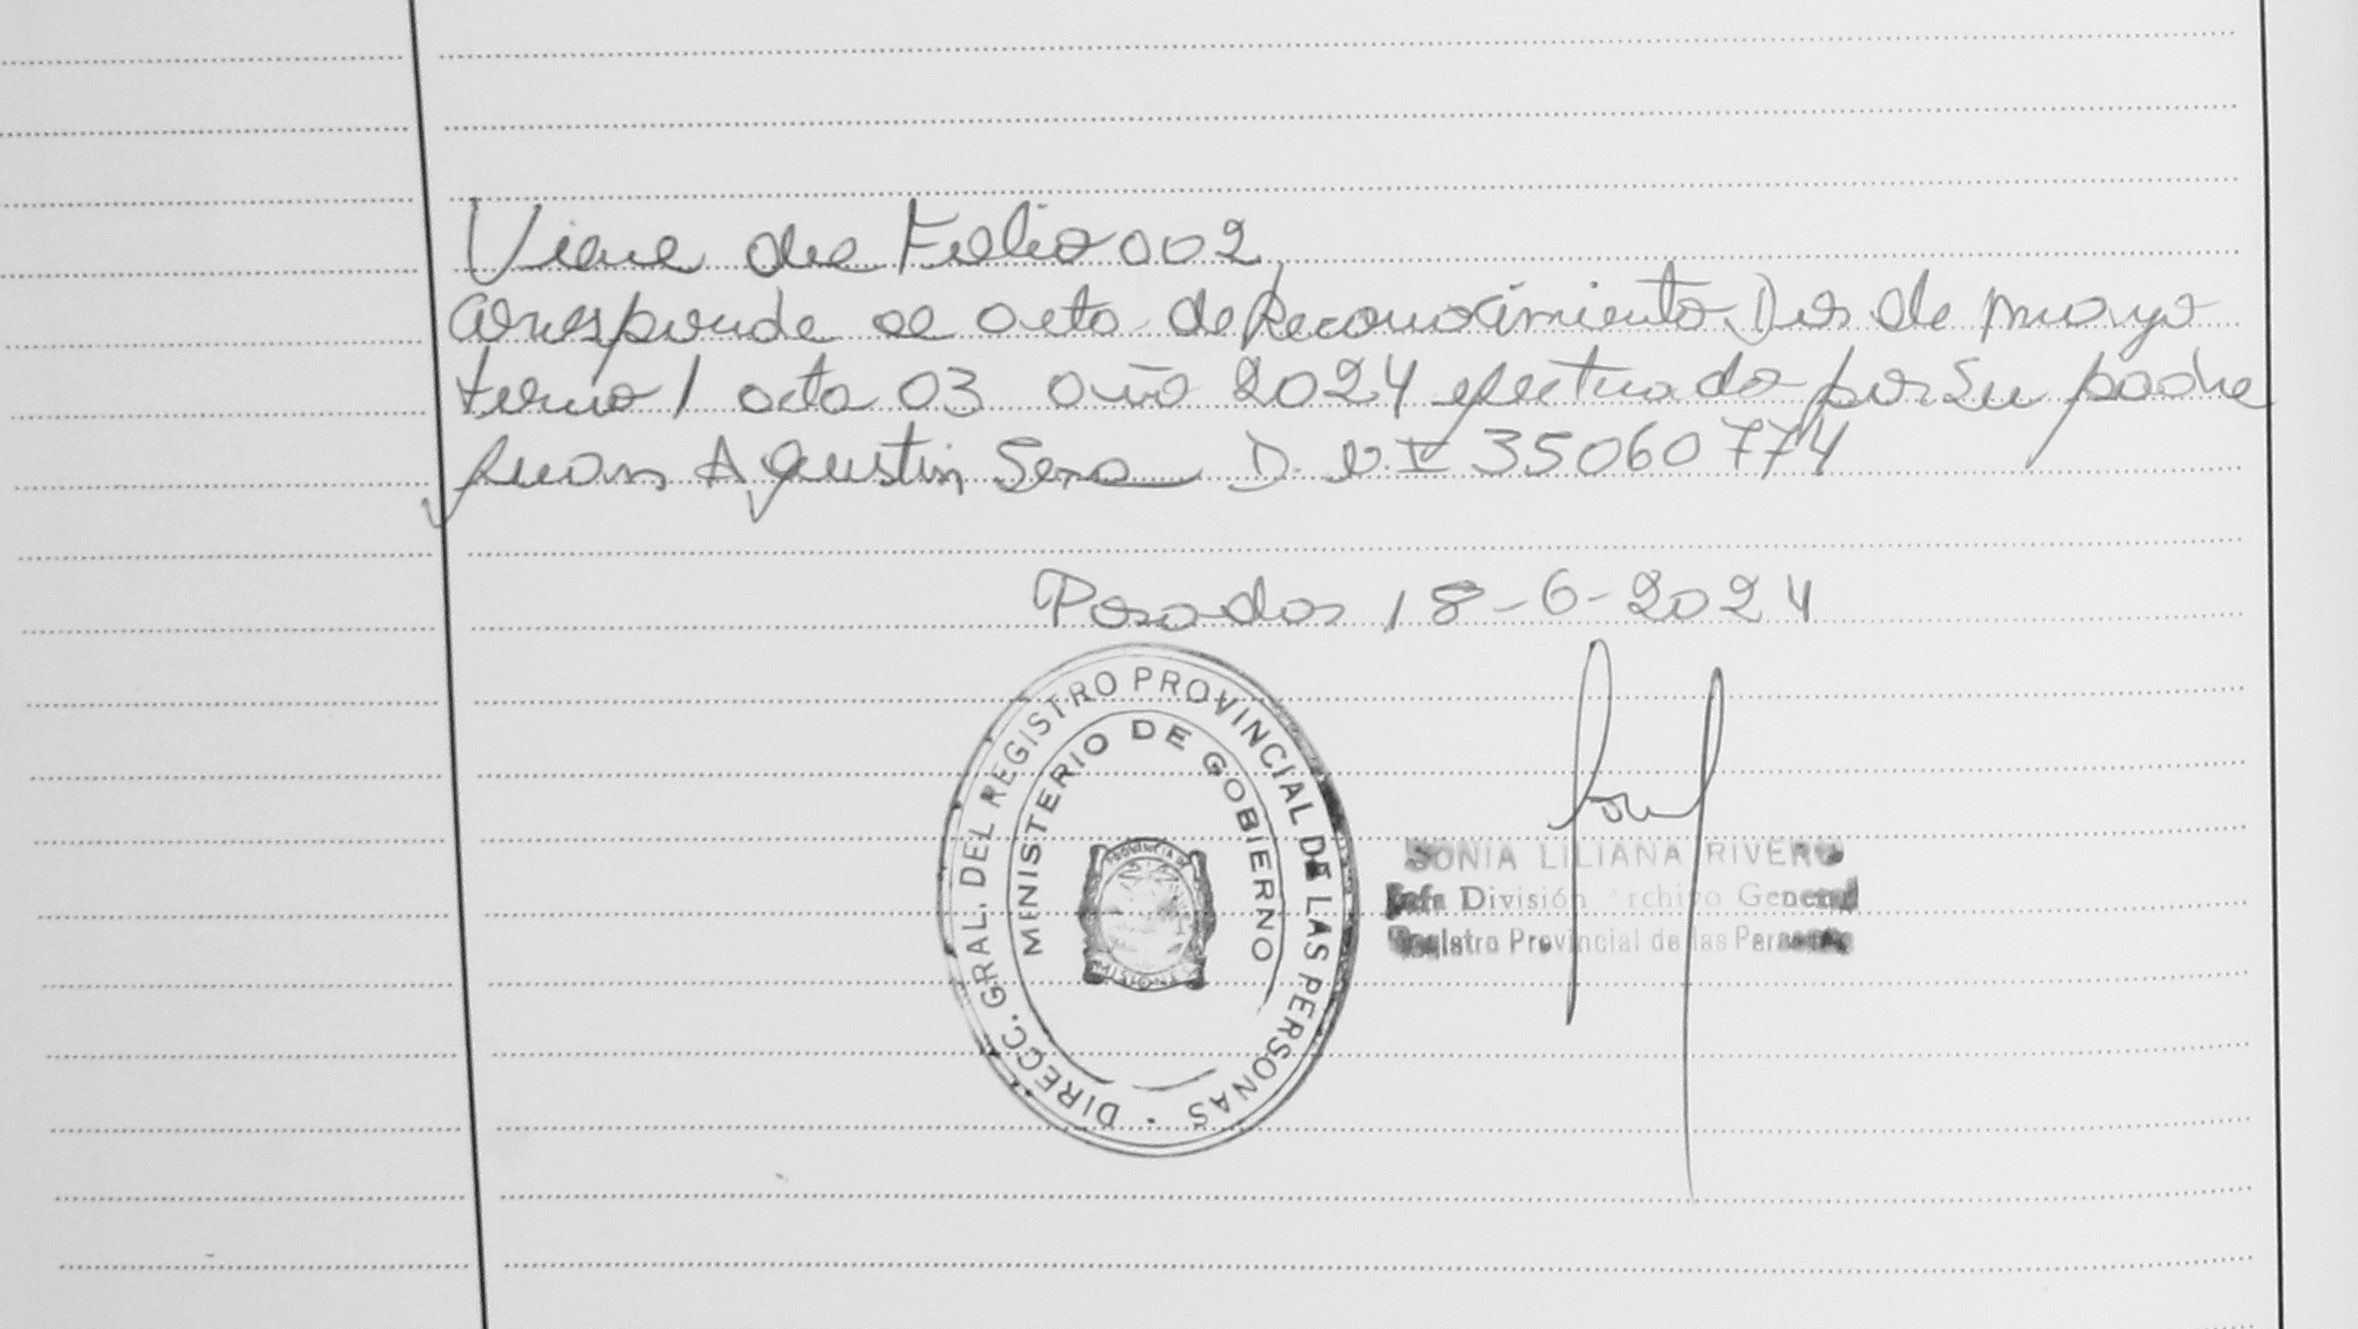 Viene del Folio 002
Corresponde al acta de Reconocimiento Dos de mayo
tomo 1 acta 03 año 2024 efectuado por su padre
Juan Agustin Sena D.N.I 35060774
Posadas 18-6-2024
DIRECC. GRAL. DEL REGISTRO PROVINCIAL DE LAS PERSONAS
MINISTERIO DE GOBIERNO
PROVINCIA DE
MISIONES
SONIA LILIANA RIVERO
Jefa División Archivo General
Registro Provincial de las Personas